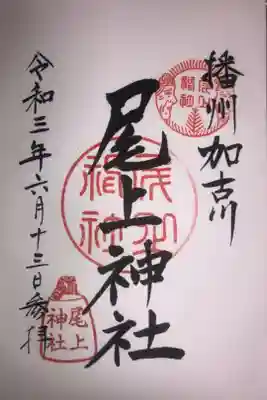 播州加古川
尾上神社
令和三年六月十三日参拝
尾上
神社